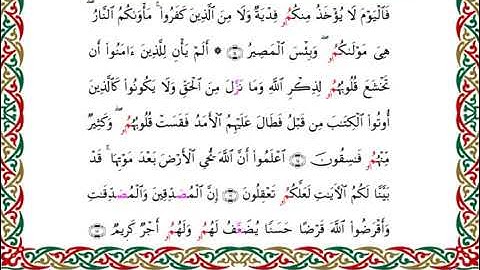 فَالْيَوْمَ لَا يُؤْخَذُ مِنكُمُۥ فِدْيَةٌ وَلَا مِنَ الَّذِينَ كَفَرُوا۟ ۚ مَأْوَىٰكُمُ النَّارُ ۖ
هِىَ مَوْلَىٰكُمُۥ ۖ وَبِئْسَ الْمَصِيرُ ۞ أَلَمْ يَأْنِ لِلَّذِينَ ءَامَنُوا۟ أَن
تَخْشَعَ قُلُوبُهُمُۥ لِذِكْرِ اللَّهِ وَمَا نَزَّلَ مِنَ الْحَقِّ وَلَا يَكُونُوا۟ كَالَّذِينَ
أُوتُوا۟ الْكِتَٰبَ مِن قَبْلُ فَطَالَ عَلَيْهِمُ الْأَمَدُ فَقَسَتْ قُلُوبُهُمُۥ ۖ وَكَثِيرٌ
مِّنْهُمُۥ فَٰسِقُونَ اعْلَمُوٓا۟ أَنَّ اللَّهَ يُحْىِ الْأَرْضَ بَعْدَ مَوْتِهَا ۚ قَدْ
بَيَّنَّا لَكُمُ الْءَايَٰتِ لَعَلَّكُمُۥ تَعْقِلُونَ إِنَّ الْمُصَدِّقِينَ وَالْمُصَدِّقَٰتِ
وَأَقْرَضُوا۟ اللَّهَ قَرْضًا حَسَنًا يُضَعَّفُ لَهُمُۥ وَلَهُمُۥ أَجْرٌ كَرِيمٌ